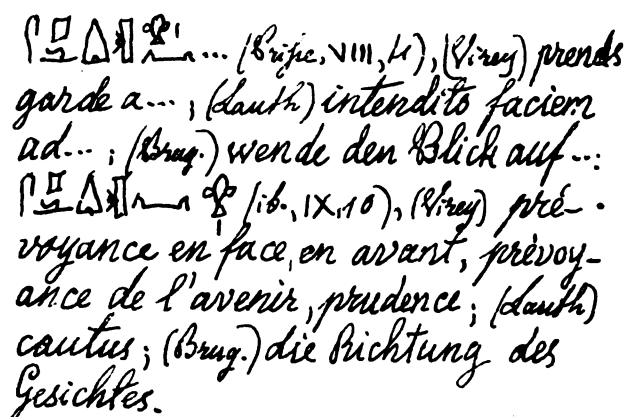 𓋴𓊪𓏏𓂞𓂝𓁷𓏤... (Prisse, VIII, 4), (Virey) prends
garde a...; (Lauth) intendito faciem
ad...; (Brug.) wende den Blick auf...:
(ib., IX, 10), (Virey) pré-
voyance en face, en avant, prévoy-
ance de l'avenir, prudence; (Lauth)
cautus; (Brug.) die Richtung des
Gesichtes.